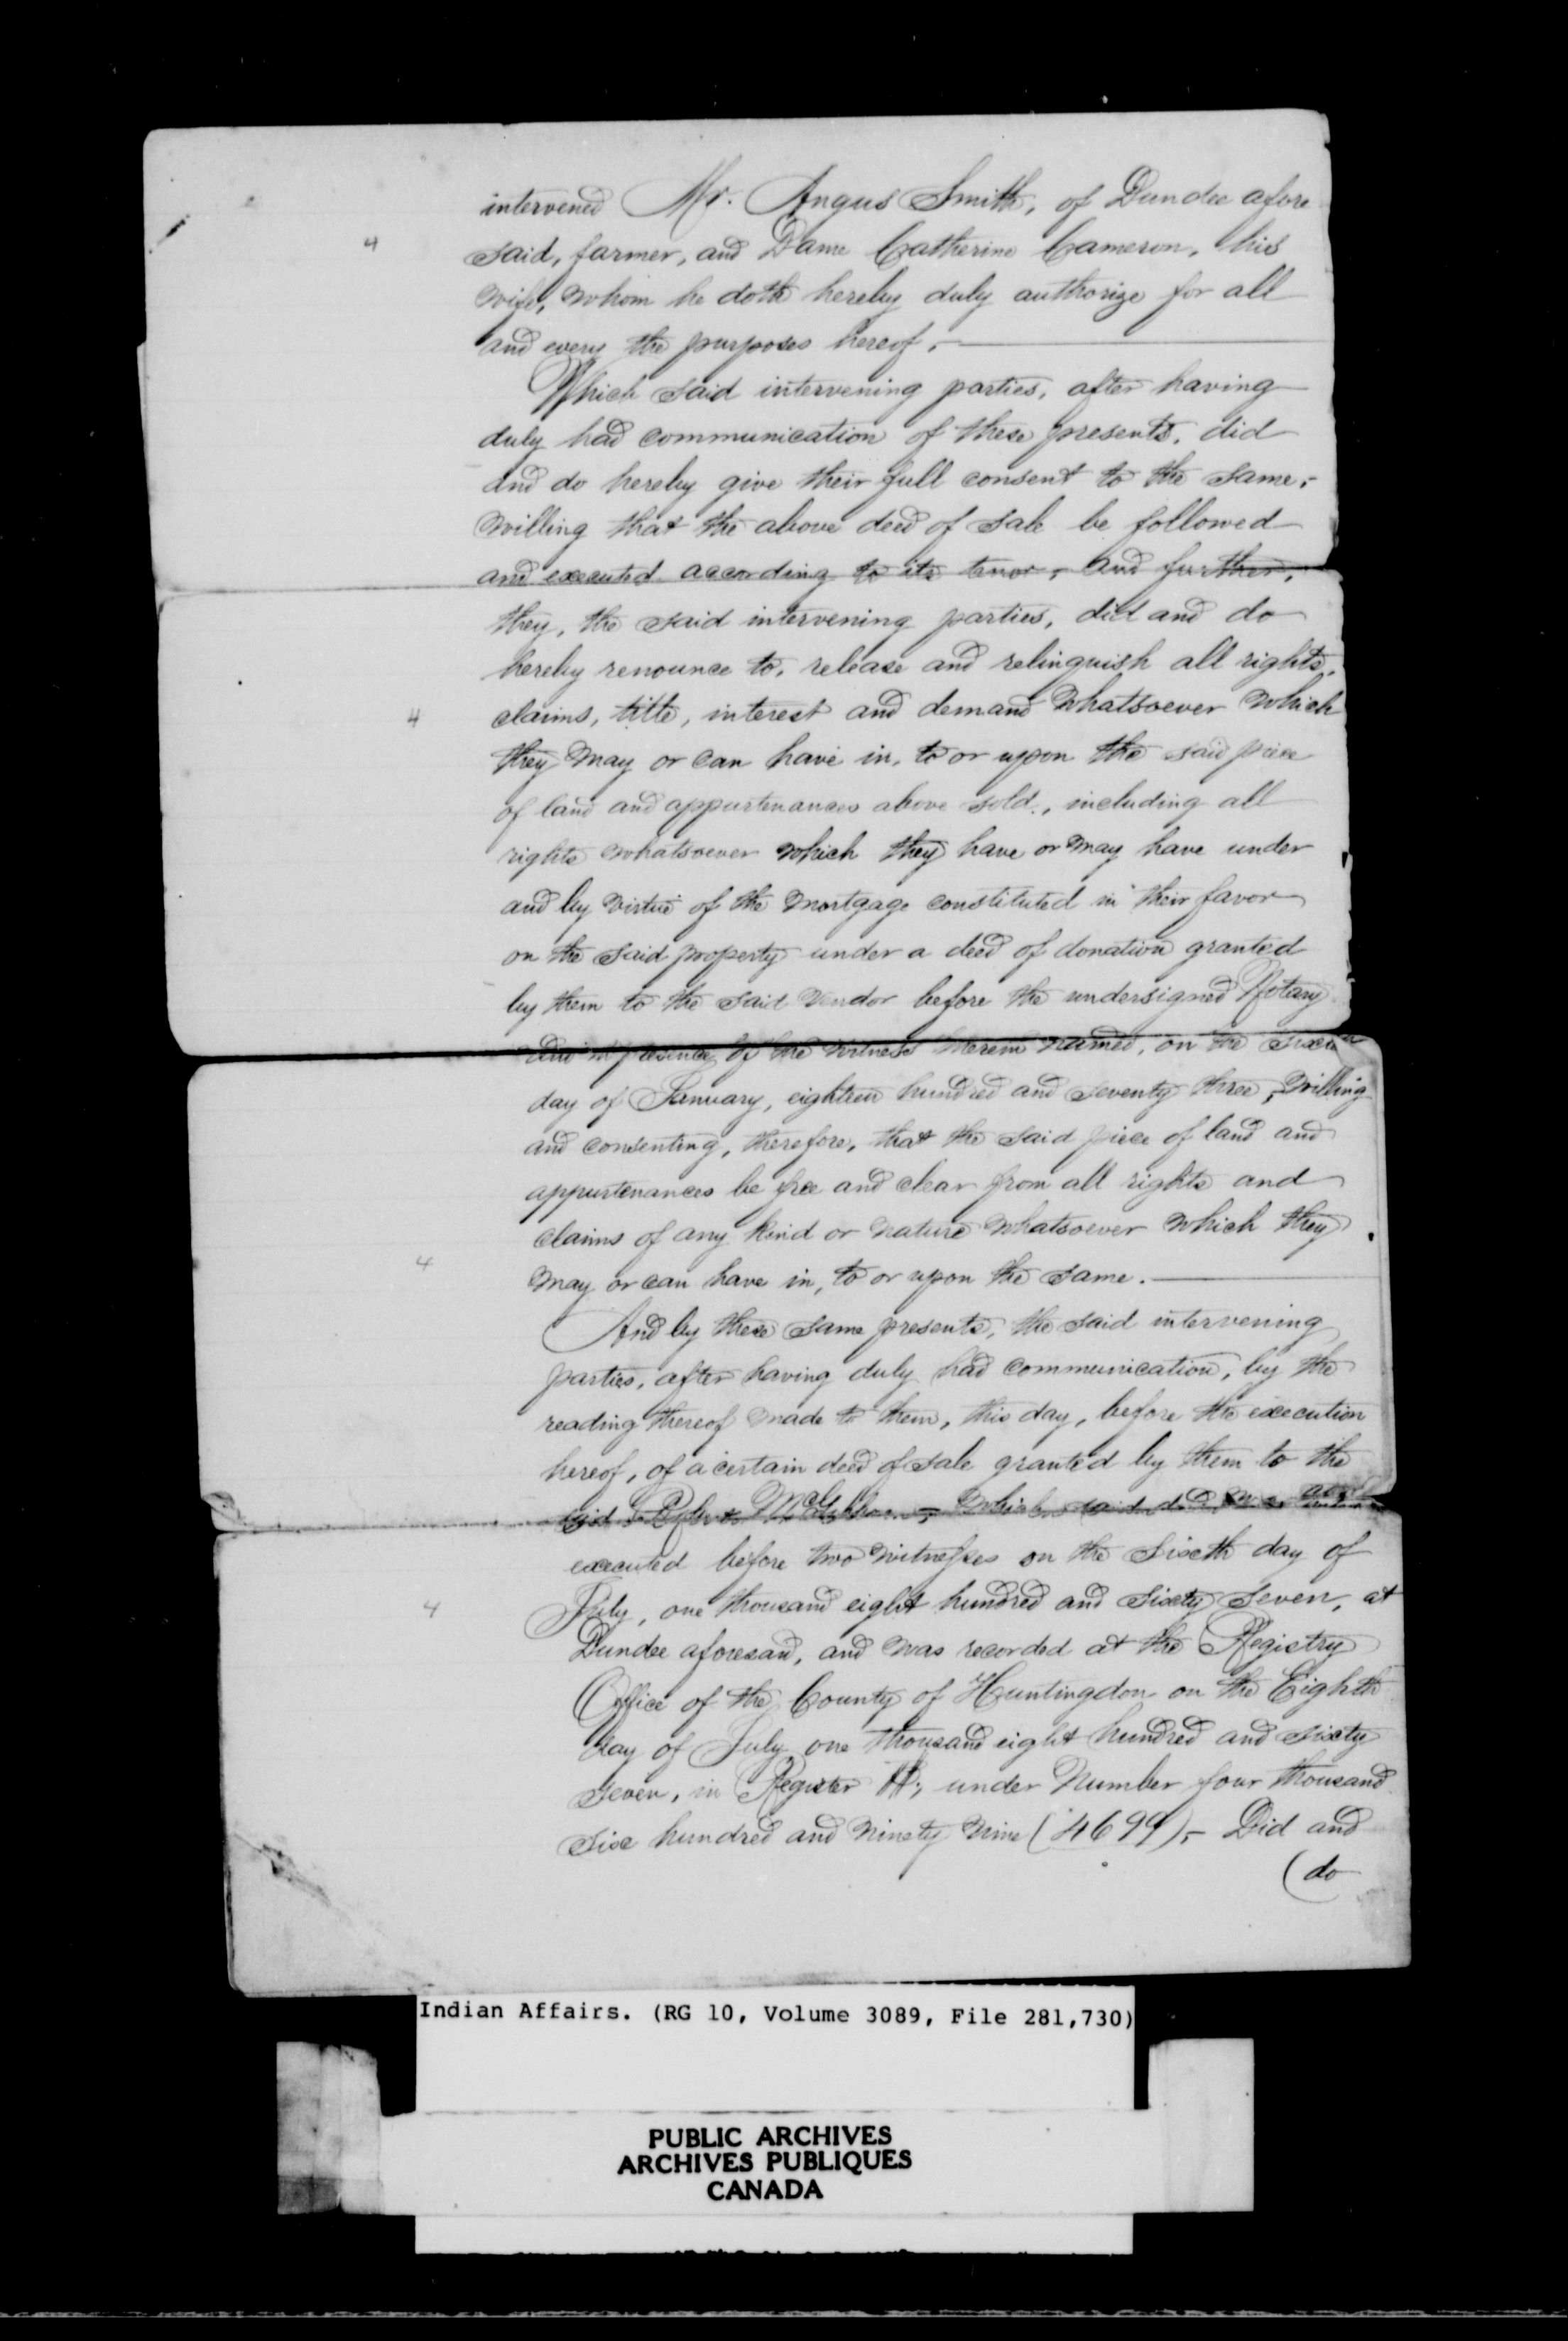 intervened Mr. Angus Smith, of Dundee afore
said, farmer, and Dame Catherine Cameron, his
wife, whom he doth hereby duly authorize for all
and every the purposes hereof.
Which said intervening parties, after having
duly had communication of these presents, did
and do hereby give their full consent to the same,
willing that the above deed of sale be followed
and executed according to its tenor, and further,
they, the said intervening parties, did and do
hereby renounce to, release and relinquish all rights,
claims, title, interest and demand whatsoever which
they may or can have in, to or upon the said piece
of land and appurtenances above sold, including all
rights whatsoever which they have or may have under
and by virtue of the mortgage constituted in their favor
on the said property under a deed of donation granted
by them to the said Vendor before the undersigned Notary
and in presence of the witness therein named, on the
day of January, eighteen hundred and seventy three, willing
and consenting, therefore, that the said piece of land and
appurtenances be free and clear from all rights and
claims of any kind or nature whatsoever which they
may or can have in, to or upon the same.
And by these same presents, the said intervening
parties, after having duly had communication, by the
reading thereof made to them, this day, before the execution
hereof, of a certain deed of sale granted by them to the
said which said
executed before two witnesses on the Sixth day of
July, one thousand eight hundred and Sixty Seven, at
Dundee aforesaid, and was recorded at the Registry
Office of the County of Huntingdon on the Eighth
day of July one thousand eight hundred and sixty
seven, in Register under Number four thousand
six hundred and Ninety Nine (4699),- Did and
(do
4
4
4
4
Indian Affairs. (RG 10, Volume 3089, File 281,730)
PUBLIC ARCHIVES
ARCHIVES PUBLIQUES
CANADA